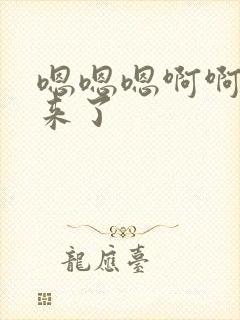 嗯嗯嗯啊啊
来了
龍應臺